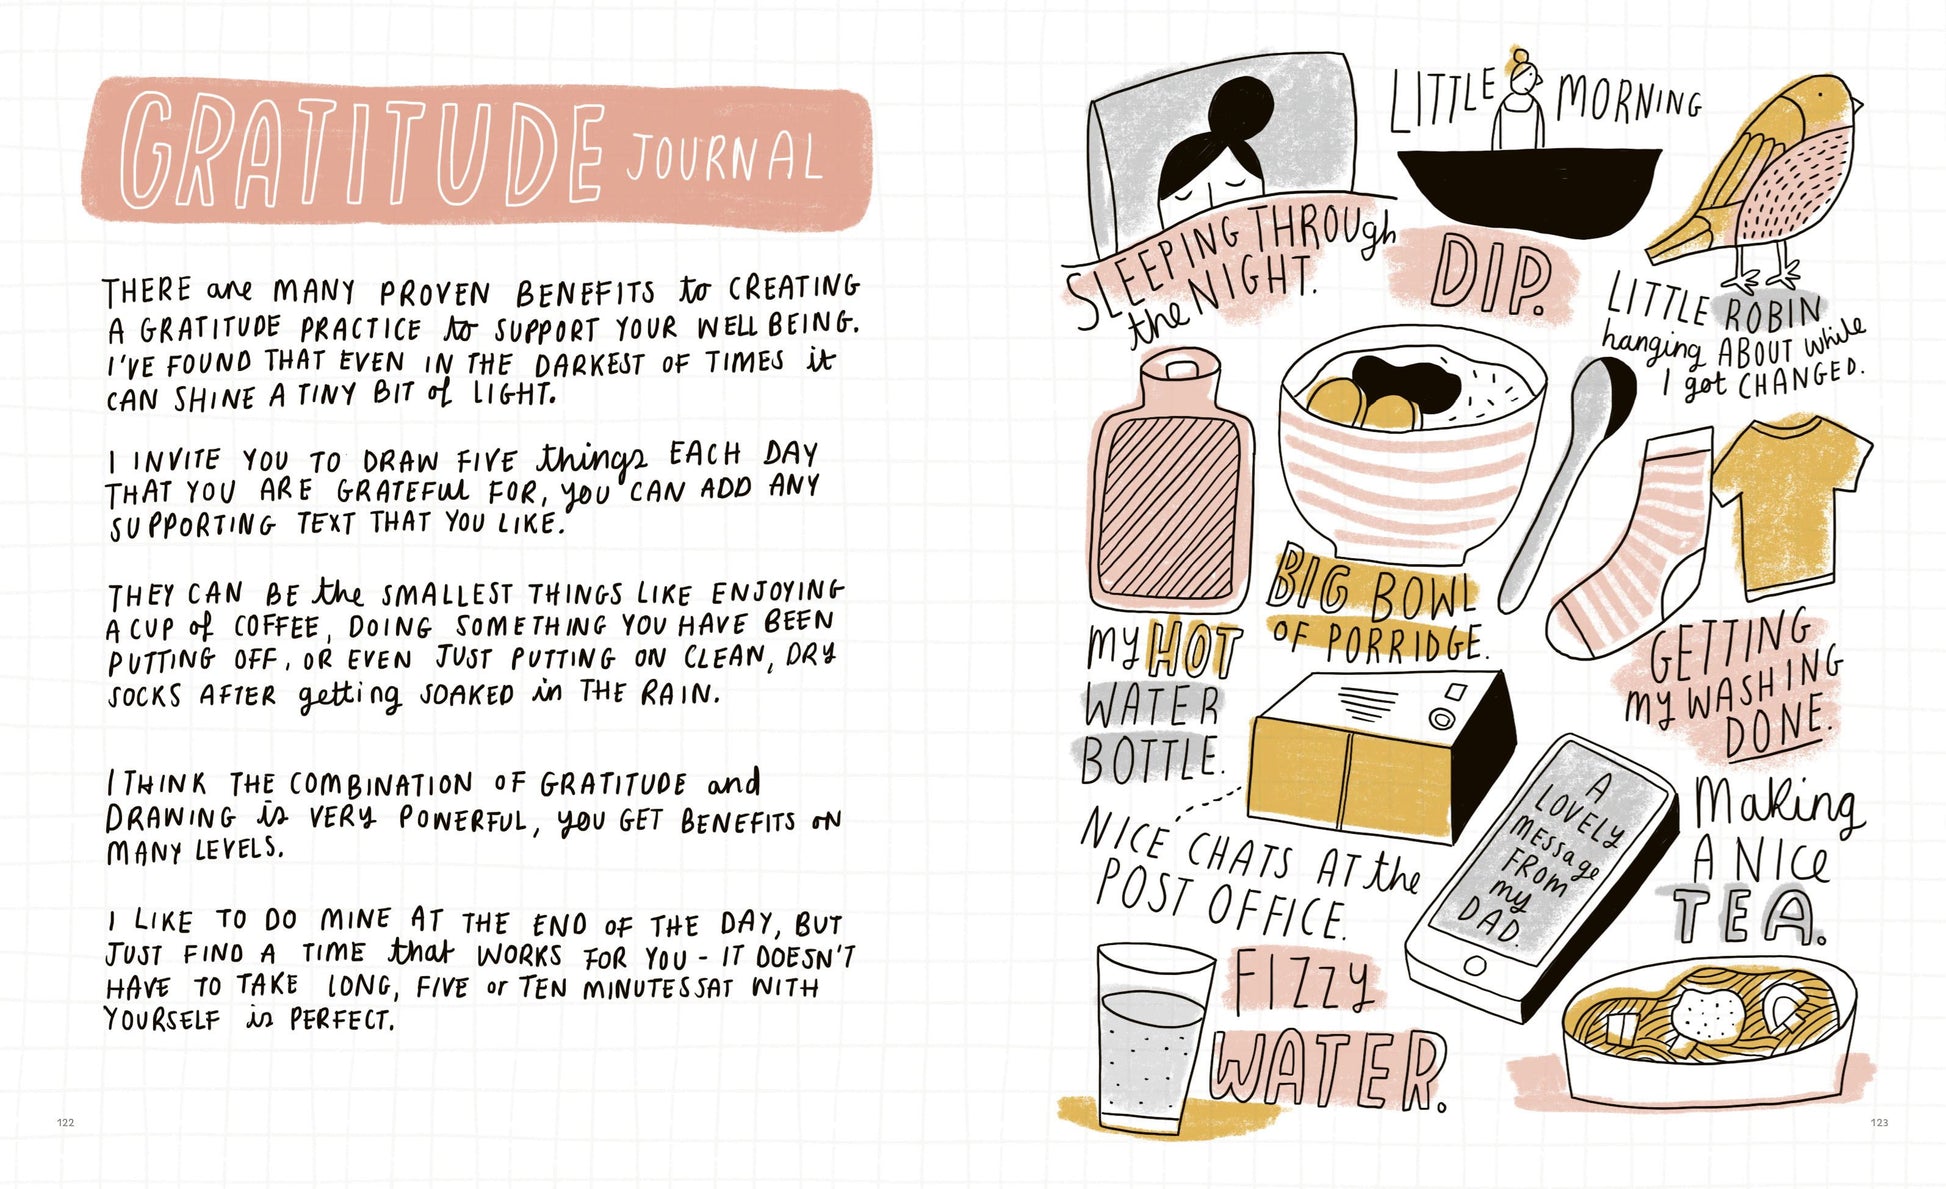 GRATITUDE JOURNAL
THERE are MANY PROVEN BENEFITS to CREATING
A GRATITUDE PRACTICE to SUPPORT YOUR WELL BEING.
I'VE FOUND THAT EVEN IN THE DARKEST OF TIMES it
CAN SHINE A TINY BIT of LIGHT.
I INVITE YOU TO DRAW FIVE things EACH DAY
THAT YOU ARE GRATEFUL FOR, you CAN ADD ANY
SUPPORTING TEXT THAT YOU LIKE.
THEY CAN BE the SMALLEST THINGS LIKE ENJOYING
A CUP of COFFEE, DOING SOMETHING YOU HAVE BEEN
PUTTING OFF, OR EVEN JUST PUTTING ON CLEAN, DRY
SOCKS AFTER getting SOAKED in THE RAIN.
I THINK THE COMBINATION OF GRATITUDE and
DRAWING is VERY POWERFUL, you GET BENEFITS ON
MANY LEVELS.
I LIKE TO DO MINE AT THE END OF THE DAY, BUT
JUST FIND A TIME that WORKS FOR YOU - IT DOESN'T
HAVE TO TAKE LONG, FIVE or TEN MINUTES SAT WITH
YOURSELF is PERFECT.
122
SLEEPING THROUgh
the NIGHT.
LITTLE MORNING
DIP.
LITTLE ROBIN
hanging ABOUT while
I got CHANGED.
MY HOT
WATER
BOTTLE.
BIG BOWL
OF PORRIDGE.
GETTING
MY WASHING
DONE.
NICE CHATS AT the
POST OFFICE.
A
LOVELY
MESSage
FROM
my
DAD.
Making
A NICE
TEA.
FIZZY
WATER.
123